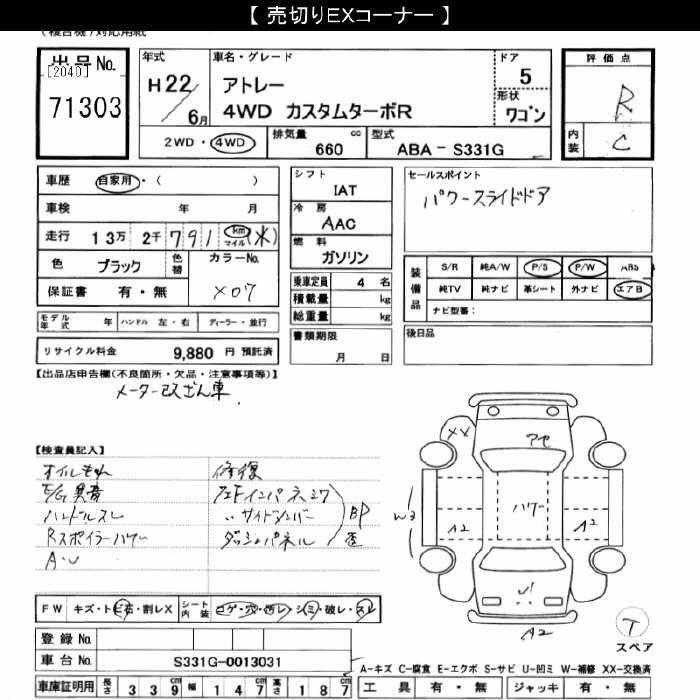 【 売切りEXコーナー 】
(複合機)対応用紙
出品No.
[2040]
71303
年式
H22/6月
車名・グレード
アトレー
4WD カスタムターボR
ドア
5
形状
ワゴン
評価点
R
内装
C
2WD・4WD
排気量
660 cc
型式
ABA-S331G
車歴 自家用・( )
車検 年 月
走行 13万 2千791 km マイル (水)
色 ブラック
色替
カラーNo.
X07
保証書 有・無
モデル年式 年 ハンドル 左・右 ディーラー・並行
リサイクル料金 9,880 円 預託済
シフト
IAT
冷房
AAC
燃料
ガソリン
乗車定員 4 名
積載量 kg
総重量 kg
書類期限
月 日
セールスポイント
パワースライドドア
装備品
S/R 純A/W P/S P/W ABS
純TV 純ナビ 革シート 外ナビ エアB
ナビ型番:
後日品
【出品店申告欄(不良箇所・欠品・注意事項等)】
メーター改ざん車
【検査員記入】
オイルもれ 修復
E/G異音
ハンドルスレ 〃サイドシルバー
Rスポイラーハワレ ダッシュパネル
BP
歪
A・W
XX
アセ
ハワレ
W3
A2
A2
U1
A2
T
スペア
FW キズ・トビ石・割レX シート内装 コゲ・穴・切レ・シミ・破レ・スレ
登録No.
車台No. S331G-0013031
車庫証明用 長さ 339cm 幅 147cm 高さ 187cm
A-キズ C-腐食 E-エクボ S-サビ U-凹ミ W-補修 XX-交換済
工具 有・無 ジャッキ 有・無